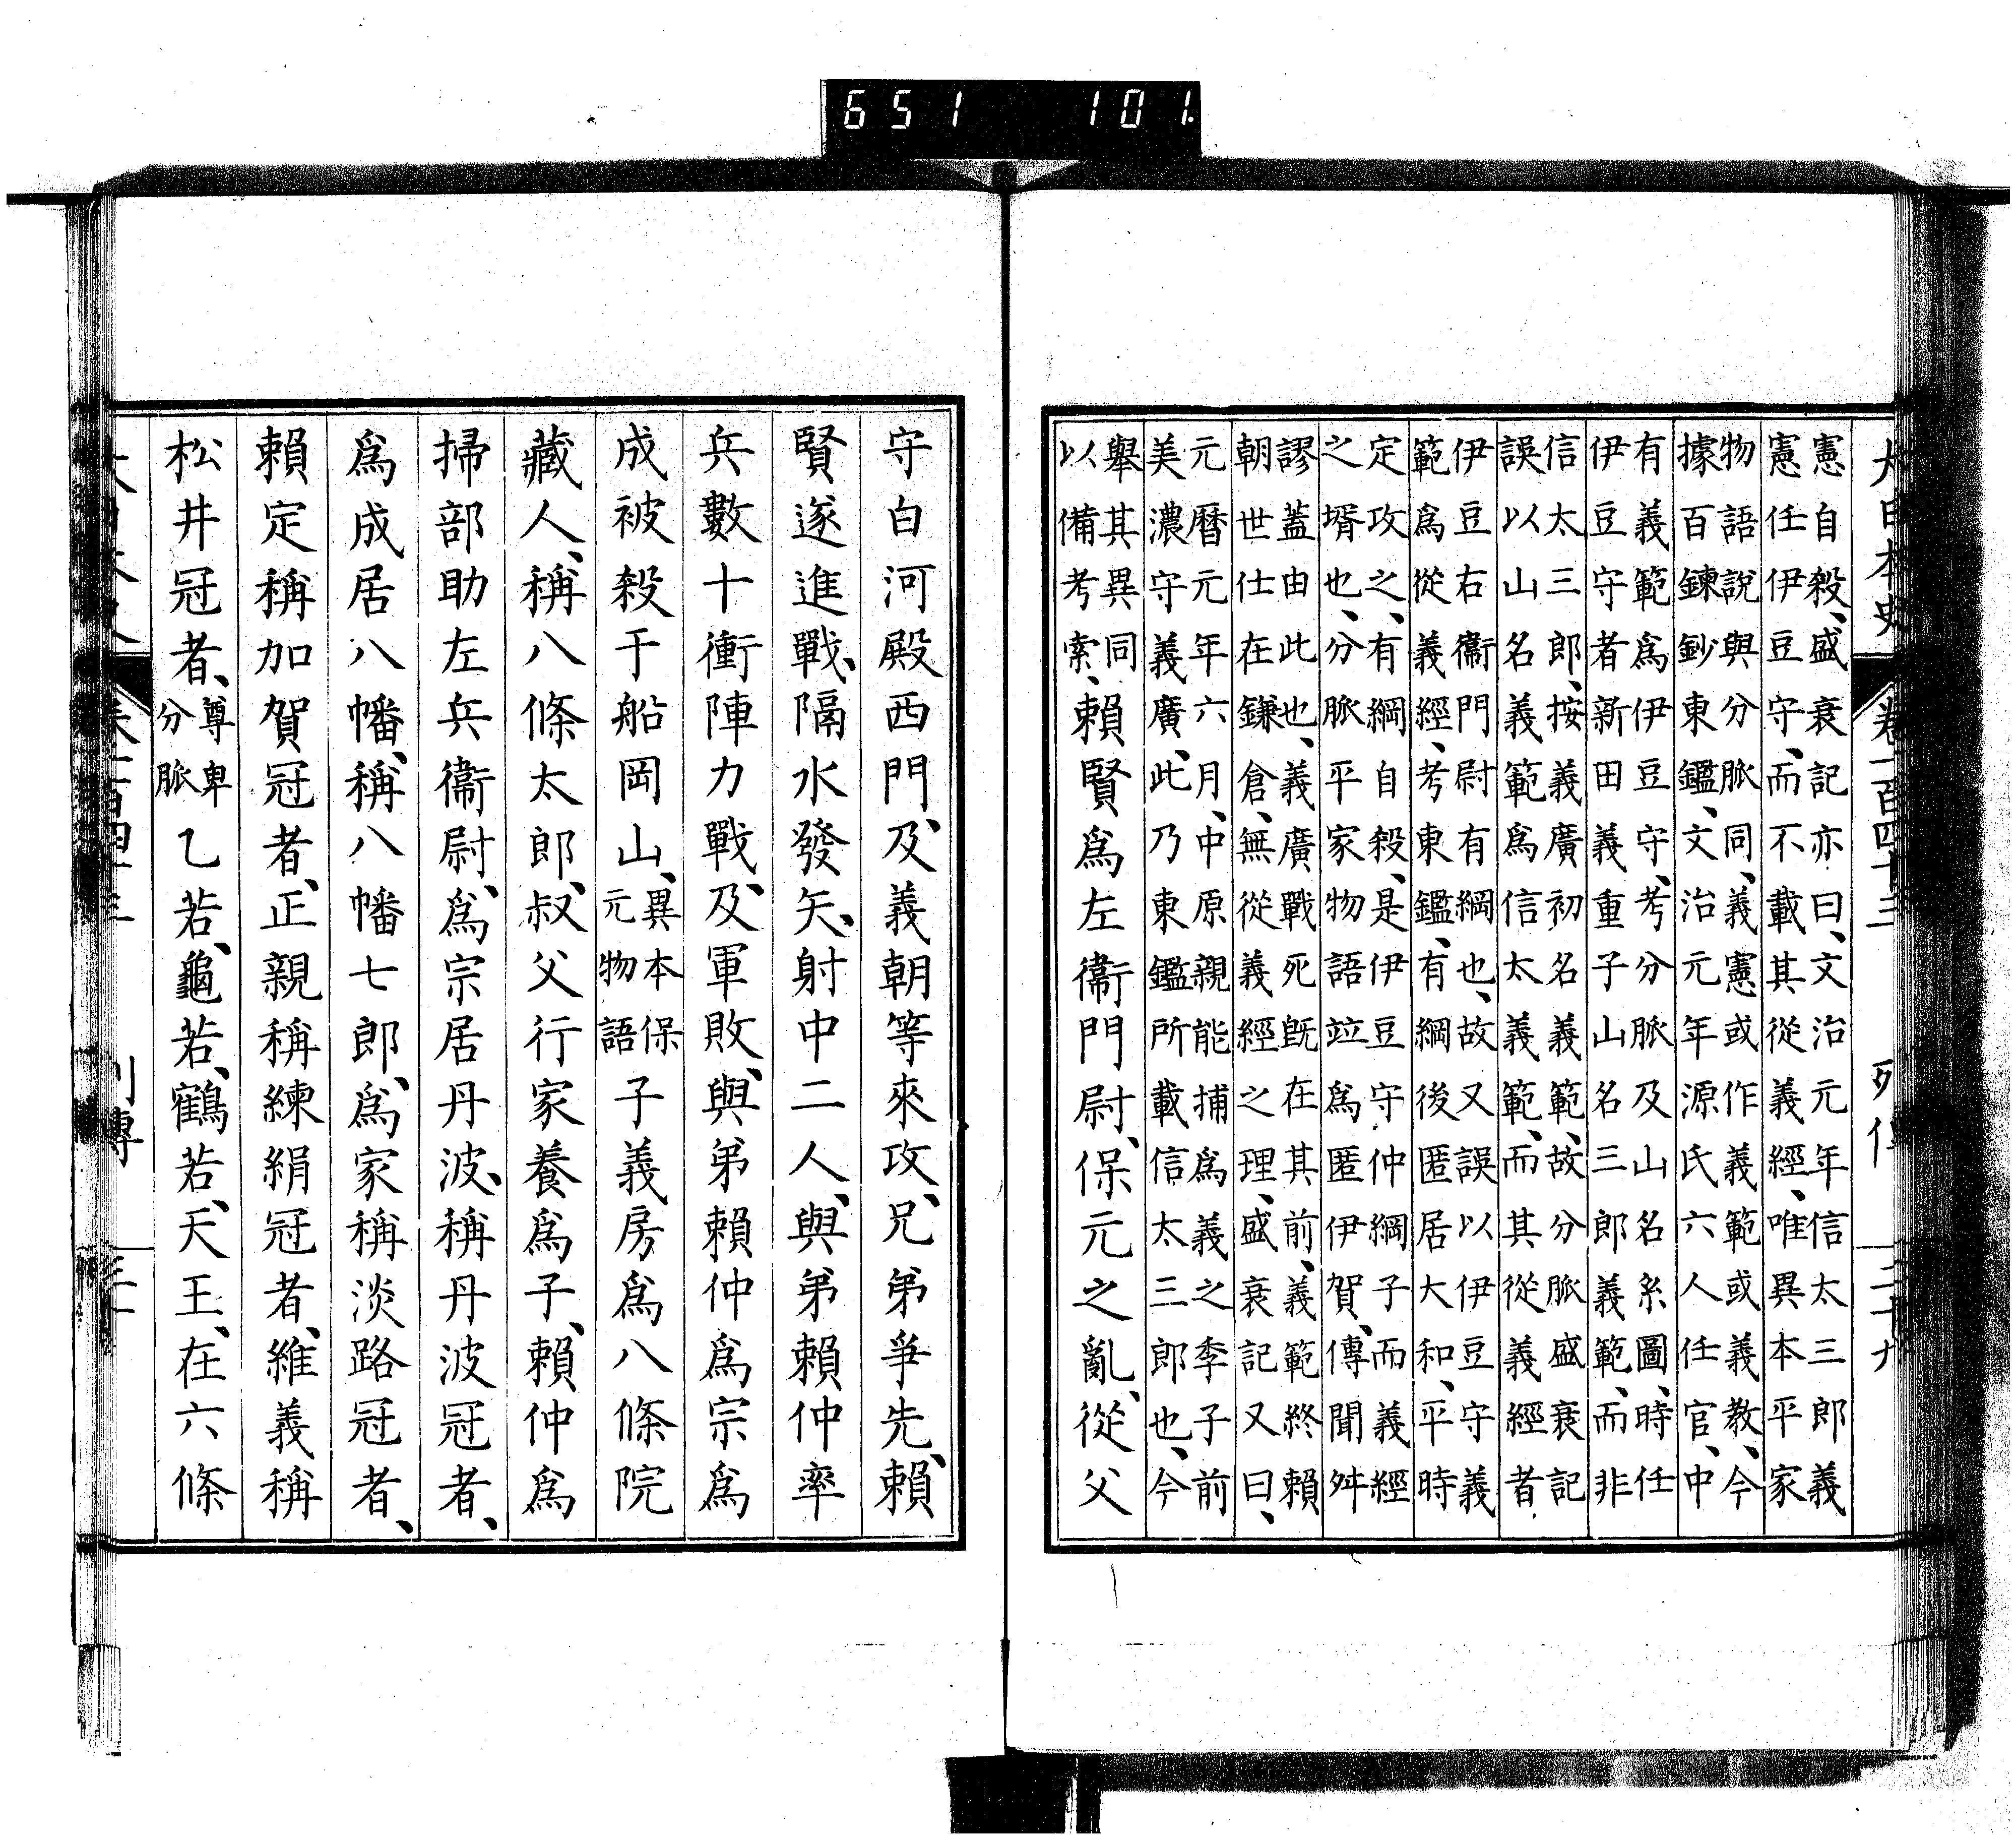 651 101
大日本史 卷一百四十三 列傳 二十九
憲自殺、盛衰記亦曰、文治元年信太三郎義
憲任伊豆守、而不載其從義經、唯異本平家
物語說與分脈同、義憲或作義範或義教、今
據百鍊鈔東鑑、文治元年源氏六人任官、中
有義範爲伊豆守、考分脈及山名系圖、時任
伊豆守者新田義重子山名三郎義範、而非
信太三郎、按義廣初名義範、故分脈盛衰記
誤以山名義範爲信太義範、而其從義經者
伊豆右衞門尉有綱也、故又誤以伊豆守義
範爲從義經、考東鑑、有綱後匿居大和、平時
定攻之、有綱自殺、是伊豆守仲綱子而義經
之壻也、分脈平家物語竝爲匿伊賀、傳聞舛
謬蓋由此也、義廣戰死旣在其前、義範終賴
朝世仕在鎌倉、無從義經之理、盛衰記又曰、
元曆元年六月、中原親能捕爲義之季子前
美濃守義廣、此乃東鑑所載信太三郎也、今
舉其異同
以備考索、
賴賢爲左衞門尉、保元之亂、從父
守白河殿西門、及義朝等來攻、兄弟爭先、賴
賢遂進戰、隔水發矢、射中二人、與弟賴仲率
兵數十衝陣力戰、及軍敗、與弟賴仲爲宗爲
成被殺于船岡山、異本保元物語子義房爲八條院
藏人、稱八條太郎、叔父行家養爲子、賴仲爲
掃部助左兵衞尉、爲宗居丹波、稱丹波冠者、
爲成居八幡、稱八幡七郎、爲家稱淡路冠者、
賴定稱加賀冠者、正親稱練絹冠者、維義稱
松井冠者、尊卑分脈乙若、龜若、鶴若、天王、在六條